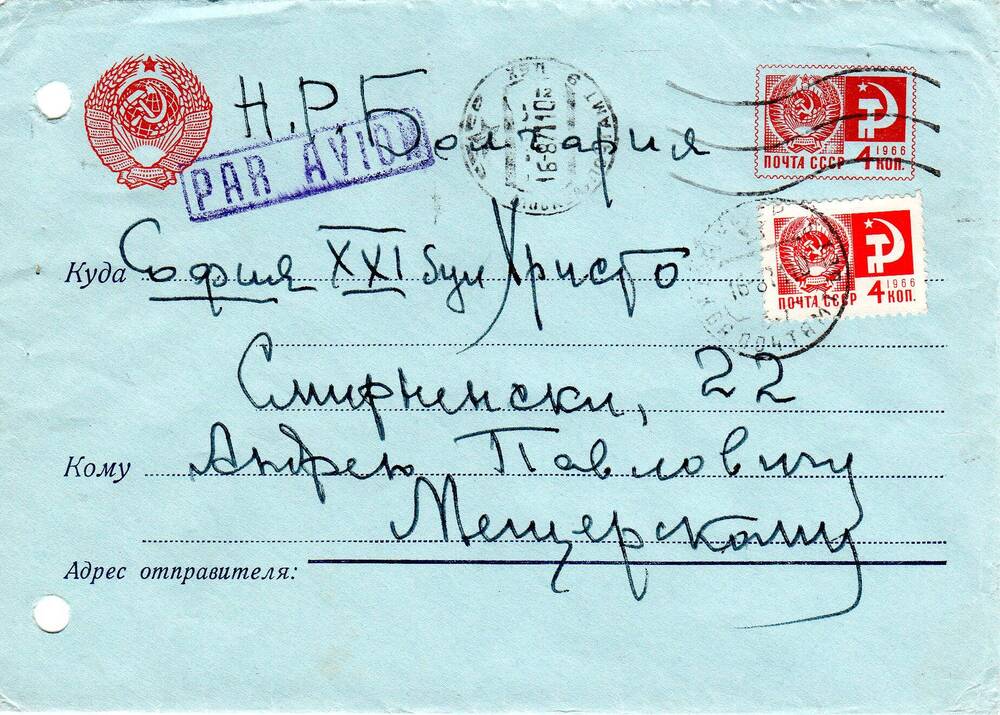 Н.Р. Болгария
PAR AVION
16-8
1966
ПОЧТА СССР 4 КОП.
1966
ПОЧТА СССР 4 КОП.
Куда София XXI бул Христо
Смирненски, 22
Кому Андрею Павловичу
Мещерскому
Адрес отправителя: